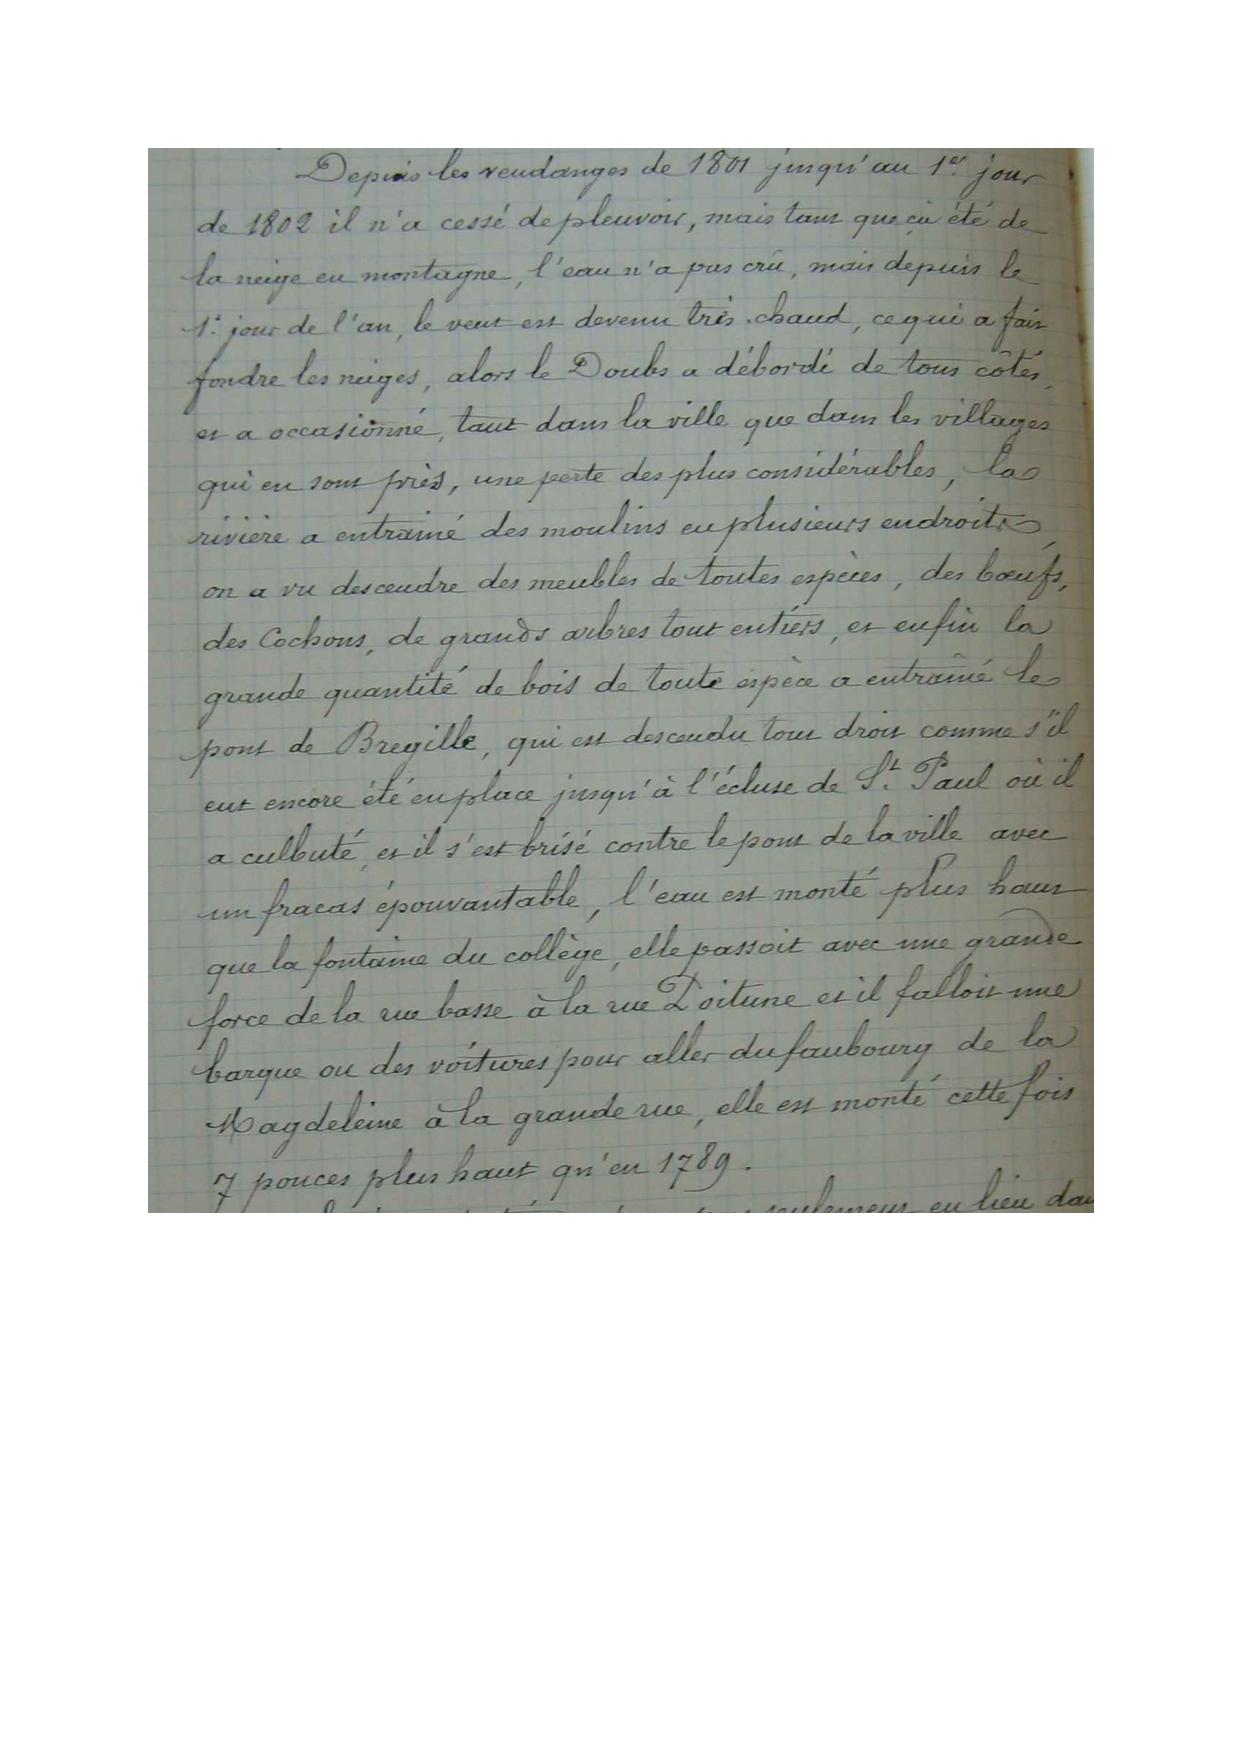 Depuis les vendanges de 1801 jusqu'au 1er jour
de 1802 il n'a cessé de pleuvoir, mais tant que ça été de
la neige en montagne, l'eau n'a pas crû, mais depuis le
1r jour de l'an, le vent est devenu très chaud, ce qui a fait
fondre les neiges, alors le Doubs a débordé de tous côtés,
et a occasionné, tant dans la ville que dans les villages
qui en sont près, une perte des plus considérables, la
rivière a entrainé des moulins en plusieurs endroits,
on a vu descendre des meubles de toutes espèces, des bœufs,
des Cochons, de grands arbres tout entiers, et enfin la
grande quantité de bois de toute espèce a entraîné le
pont de Bregille, qui est descendu tout droit comme s'il
eut encore été en place jusqu'à l'écluse de St. Paul où il
a culbuté, et il s'est brisé contre le pont de la ville avec
un fracas épouvantable, l'eau est monté plus haut
que la fontaine du collège, elle passoit avec une grande
force de la rue basse à la rue Poitune et il falloit une
barque ou des voitures pour aller du faubourg de la
Magdeleine à la grande rue, elle est monté cette fois
7 pouces plus haut qu'en 1789.
seulement en lieu